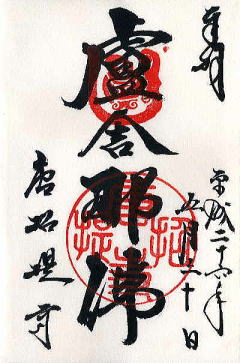 奉拝
平成二十六年
五月三十日
盧舎那佛
唐招提寺